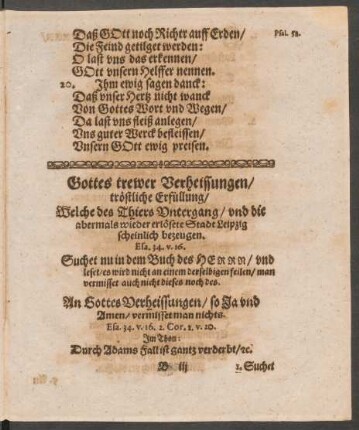 Daß GOtt noch Richter auff Erden/ Psal. 58.
Die Feind getilget werden:
O last vns das erkennen/
GOtt vnsern Helffer nennen.
20. Ihm ewig sagen danck:
Daß vnser Hertz nicht wanck
Von Gottes Wort vnd Wegen/
Da last vns fleiß anlegen/
Vns guter Werck befleissen/
Vnsern GOtt ewig preisen.
Gottes trewer Verheissungen/
tröstliche Erfüllung/
Welche des Thiers Vntergang/ vnd die
abermals wieder erlösete Stadt Leipzig
scheinlich bezeugen.
Esa. 34. v. 16.
Suchet nu in dem Buch des HERRN/ vnd
leset/ es wird nicht an einem derselbigen feilen/ man
vermisset auch nicht dieses noch des.
An Gottes Verheissungen/ so Ja vnd
Amen/ vermisset man nichts.
Esa. 34. v. 16. 2. Cor. 1. v. 20.
Im Thon:
Durch Adams Fall ist gantz verderbt/ ꝛc.
iij 1. Suchet